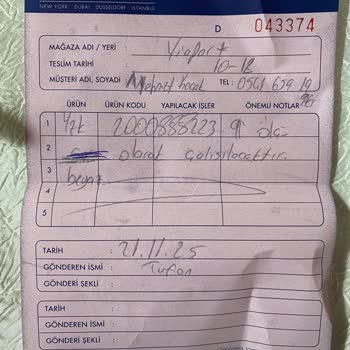 NEW YORK DUBAI DUSSELDORF ISTANBUL
D 043374
MAĞAZA ADI / YERİ : Viaport
TESLİM TARİHİ : 10-12
MÜŞTERİ ADI, SOYADI Mehmet Kocak TEL : 0561 659 19
96
ÜRÜN ÜRÜN KODU YAPILACAK İŞLER ÖNEMLİ NOTLAR
1 Yzk 2000858223 9 ölçü
2 olarak çalışılacaktır.
3 beyaz
4
5
TARİH : 21.11.25
GÖNDEREN İSMİ : Tufan
GÖNDERİ ŞEKLİ :
TARİH :
GÖNDEREN İSMİ :
GÖNDERİ ŞEKLİ :